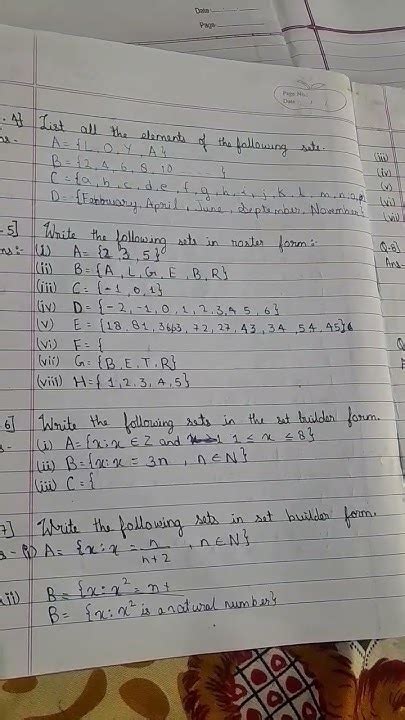 Date
Page
Page No.
Date
4] List all the elements of the following sets.
A = {L, O, Y, A}
B = {2, 4, 6, 8, 10 ...... }
C = {a, b, c, d, e, f, g, h, i, j, k, l, m, n, o, p
D = {February, April, June, September, November}
-5] Write the following sets in roster form:-
Ans:- (i) A = {2, 3, 5}
(ii) B = {A, L, G, E, B, R}
(iii) C = {-1, 0, 1}
(iv) D = {-2, -1, 0, 1, 2, 3, 4, 5, 6}
(v) E = {18, 81, 36, 63, 72, 27, 43, 34, 54, 45}
(vi) F = {
(vii) G = {B, E, T, R}
(viii) H = {1, 2, 3, 4, 5}
6] Write the following sets in the set builder form.
(i) A = {x : x ∈ Z and 1 ≤ x ≤ 8}
(ii) B = {x : x = 3n, n ∈ N}
(iii) C = {
7] Write the following sets in set builder form.
(i) A = {x : x = n/n+2, n ∈ N}
ii) B = {x : x² = n+
B = {x : x² is a natural number}
(iii)
(iv)
(v)
(vi)
(vii)
Q-8]
Ans-